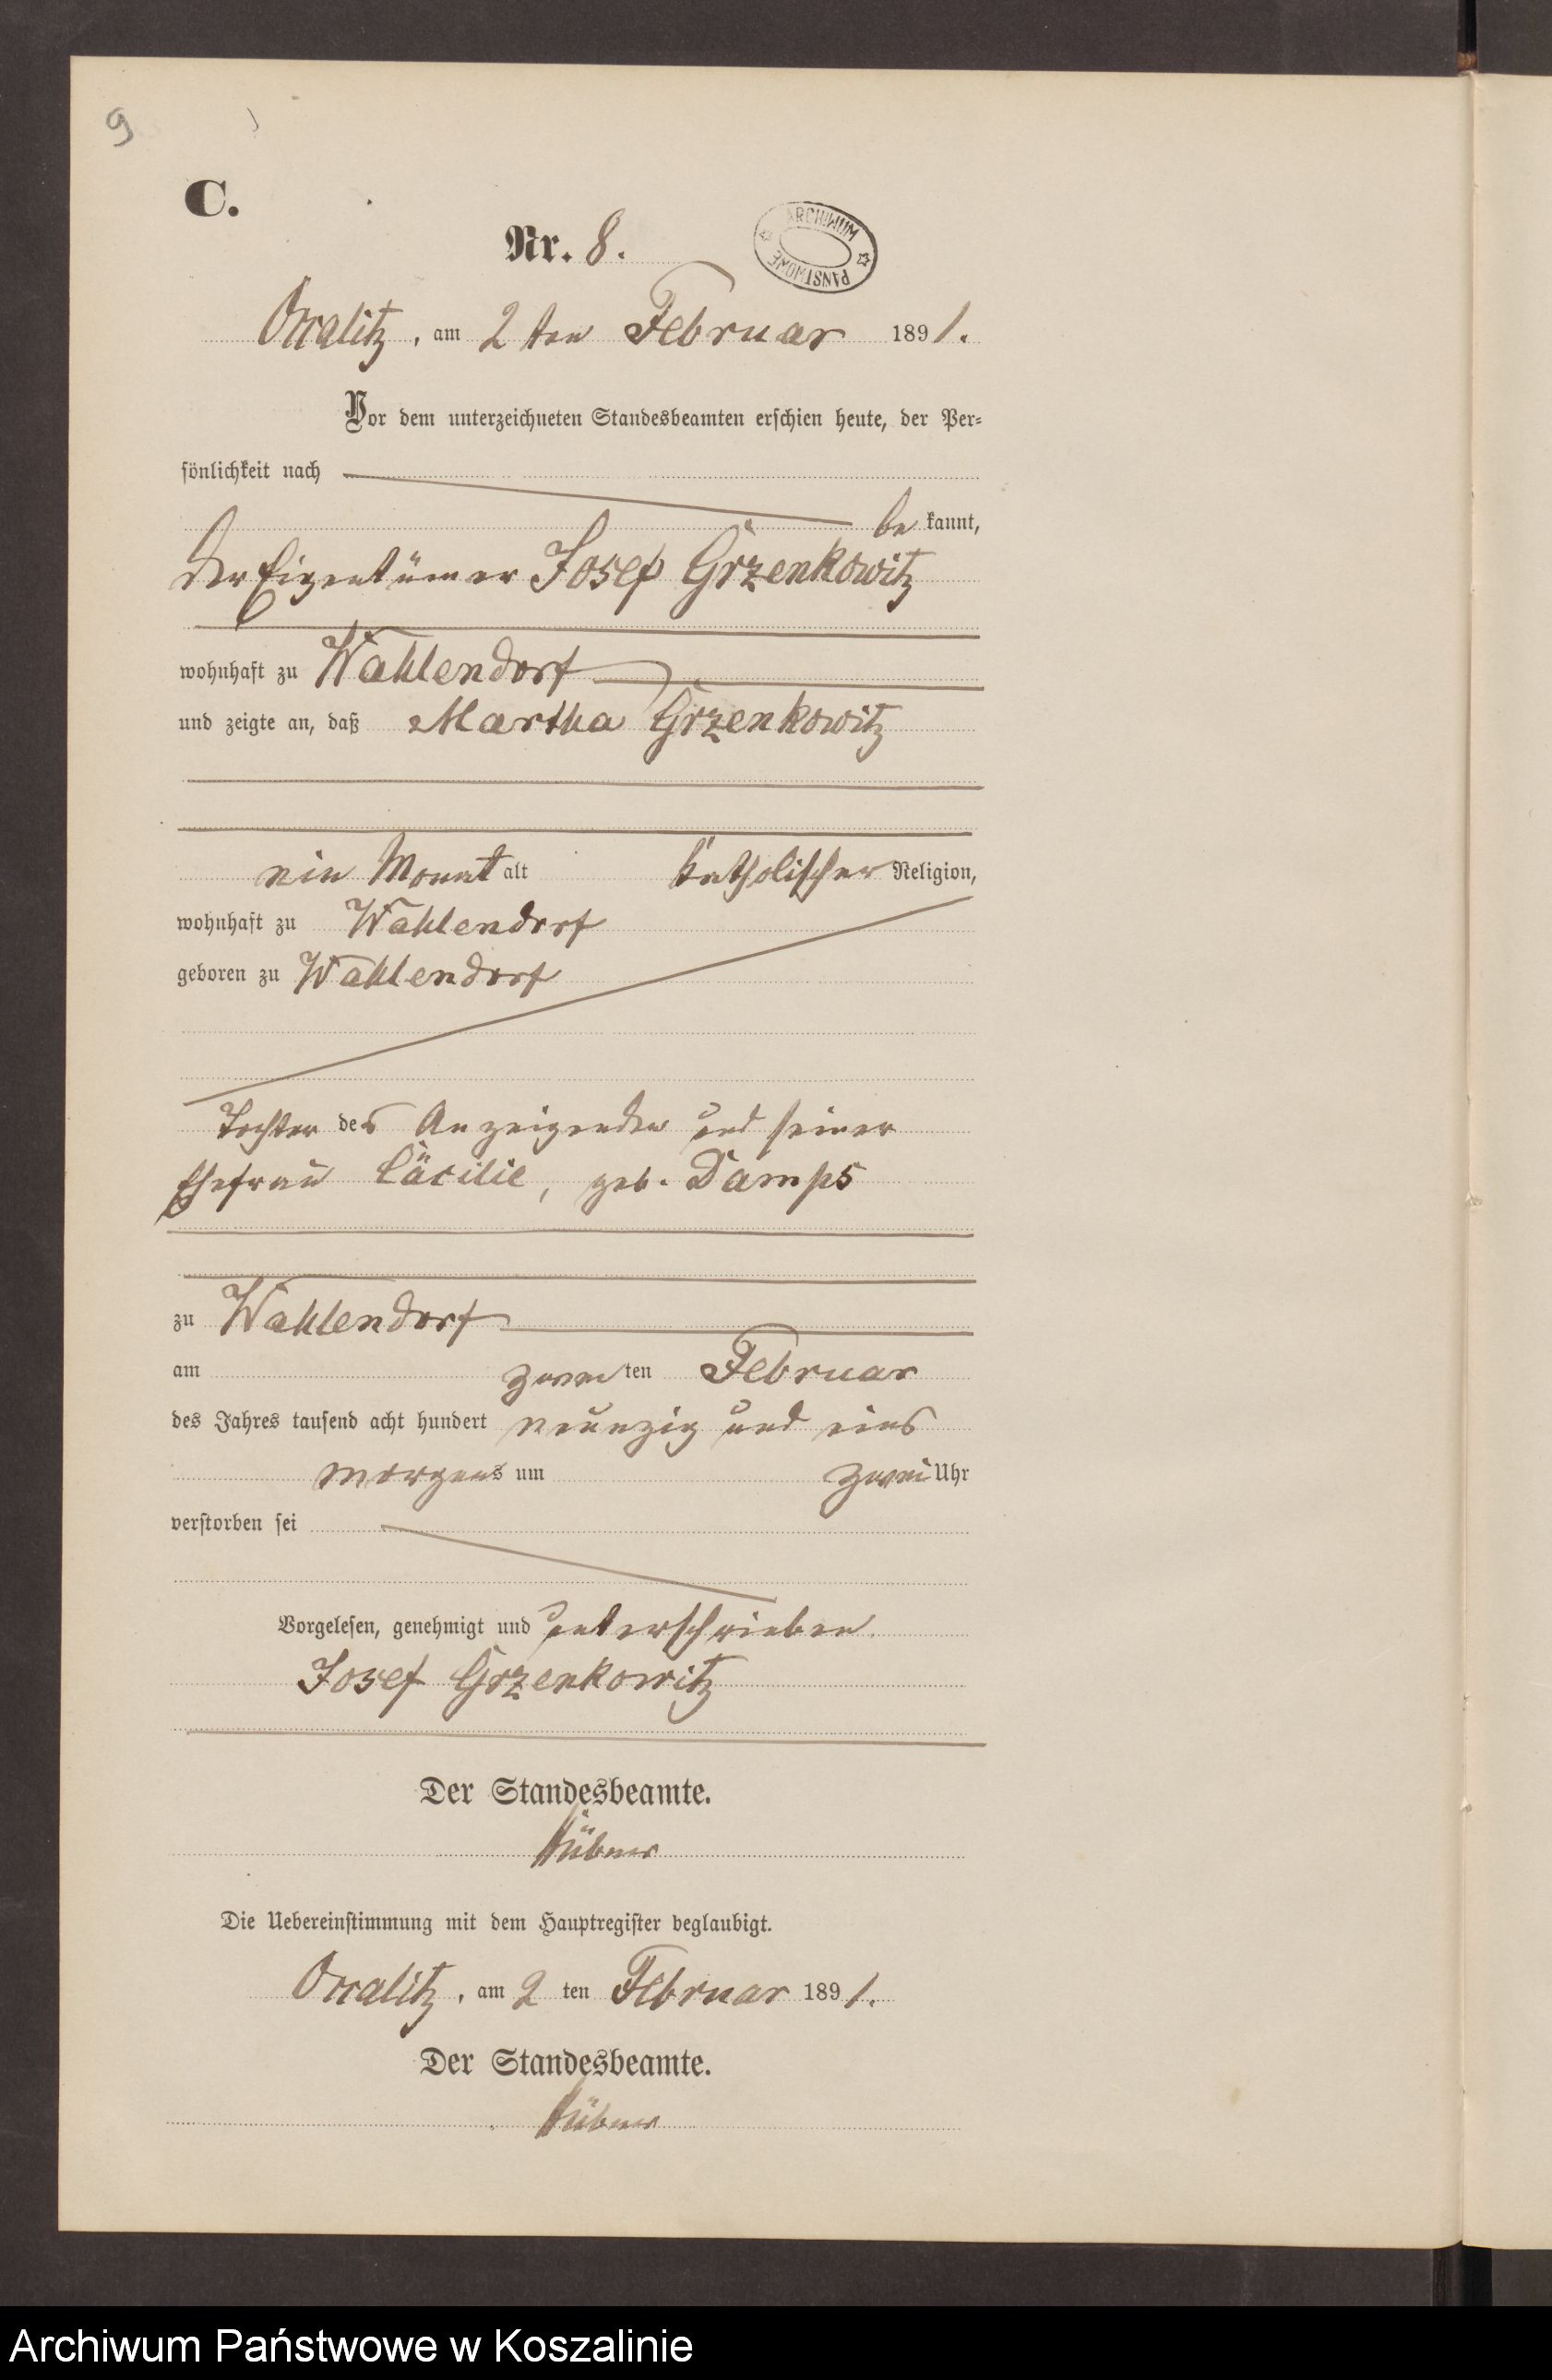 9
C.
Nr. 8.
ARCHIWUM PAŃSTWOWE
Occalitz, am 2 ten Februar 1891.
Vor dem unterzeichneten Standesbeamten erschien heute, der Per-
sönlichkeit nach
be kannt,
der Eigentümer Josef Grzenkowitz
wohnhaft zu Wahlendorf
und zeigte an, daß Martha Grzenkowitz
ein Monat alt katholischer Religion,
wohnhaft zu Wahlendorf
geboren zu Wahlendorf
Tochter des Anzeigenden und seiner
Ehefrau Cäcilie, geb. Damps
zu Wahlendorf
am zweiten Februar
des Jahres tausend acht hundert neunzig und eins
Morgens um zwei Uhr
verstorben sei
Vorgelesen, genehmigt und unterschrieben.
Josef Grzenkowitz
Der Standesbeamte.
Hübner
Die Uebereinstimmung mit dem Hauptregister beglaubigt.
Occalitz, am 2 ten Februar 1891.
Der Standesbeamte.
Hübner
Archiwum Państwowe w Koszalinie